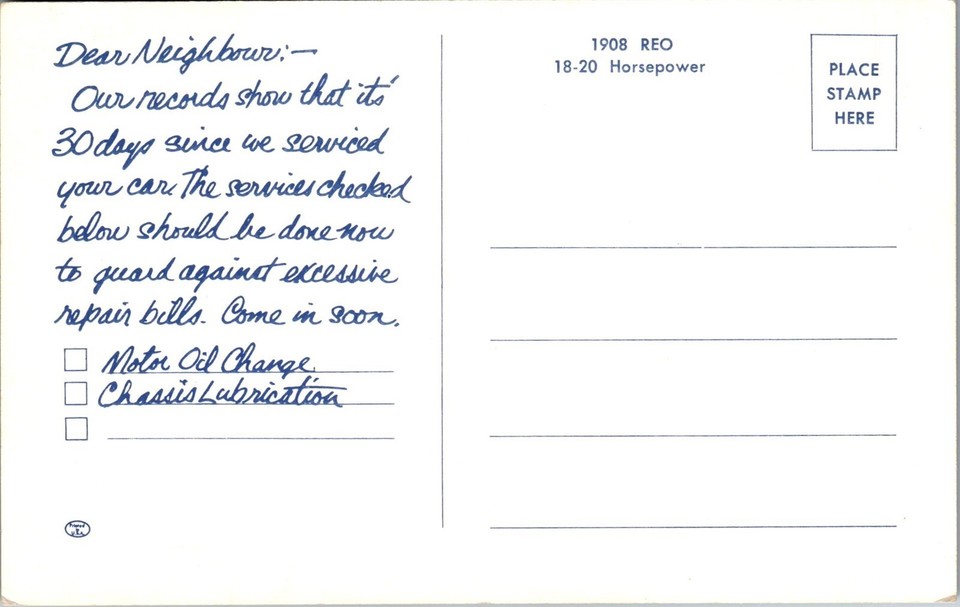 Dear Neighbour:—
Our records show that it's
30 days since we serviced
your car. The services checked
below should be done now
to guard against excessive
repair bills. Come in soon.
Motor Oil Change
Chassis Lubrication
1908 REO
18-20 Horsepower
PLACE
STAMP
HERE